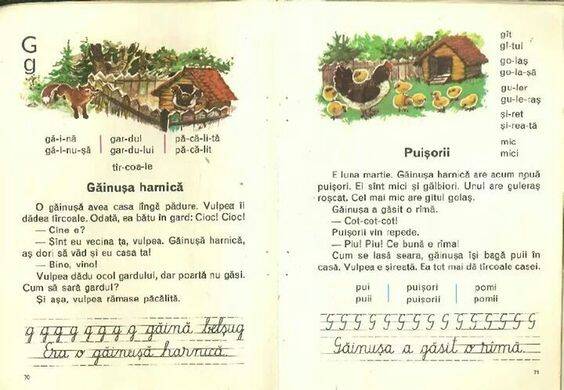 G
g
gă-i-nă gar-dul pă-că-li-tă
gă-i-nu-şă gar-du-lui pă-că-lit
tir-coa-le
Găinuşa harnică
O găinuşă avea casa lîngă pădure. Vulpea îi
dădea tîrcoale. Odată, ea bătu în gard: Cioc! Cioc!
— Cine e?
— Sînt eu vecina ta, vulpea. Găinuşă harnică,
aş dori să văd şi eu casa ta!
— Bine, vino!
Vulpea dădu ocol gardului, dar poartă nu găsi.
Cum să sară gardul?
Şi aşa, vulpea rămase păcălită.
g g g g g g g g găină belşug
Era o găinuşă harnică.
70
gît
gî-tul
go-laş
go-la-şă
gu-ler
gu-le-raş
şi-ret
şi-rea-tă
mic
mici
Puişorii
E luna martie. Găinuşa harnică are acum nouă
puişori. Ei sînt mici şi gălbiori. Unul are guleraş
roşcat. Cel mai mic are gîtul golaş.
Găinuşa a găsit o rîmă.
— Cot-cot-cot!
Puişorii vin repede.
— Piu! Piu! Ce bună e rîma!
Cum se lasă seara, găinuşa îşi bagă puii în
casă. Vulpea e şireată. Ea tot mai dă tîrcoale casei.
pui puişori pomi
puii puişorii pomii
G G G G G G G G G G G G G G
Găinuşa a găsit o rîmă.
71